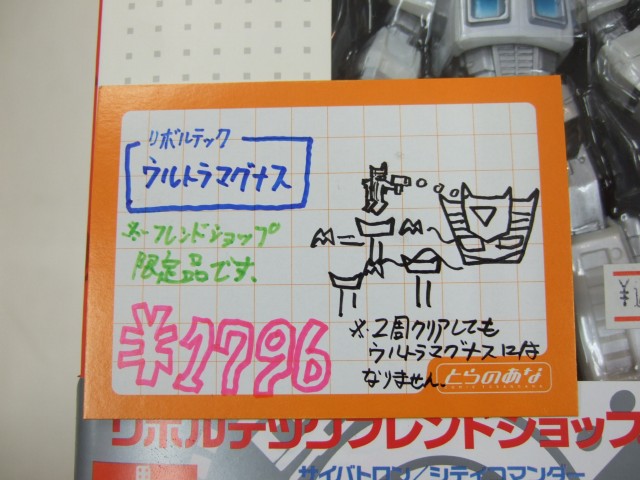 リボルテック
ウルトラマグナス
※フレンドショップ
限定品です。
¥1796
※2周クリアしても
ウルトラマグナスには
なりません。
とらのあな
リボルテックフレンドショップ
サイバトロン/シティコマンダー